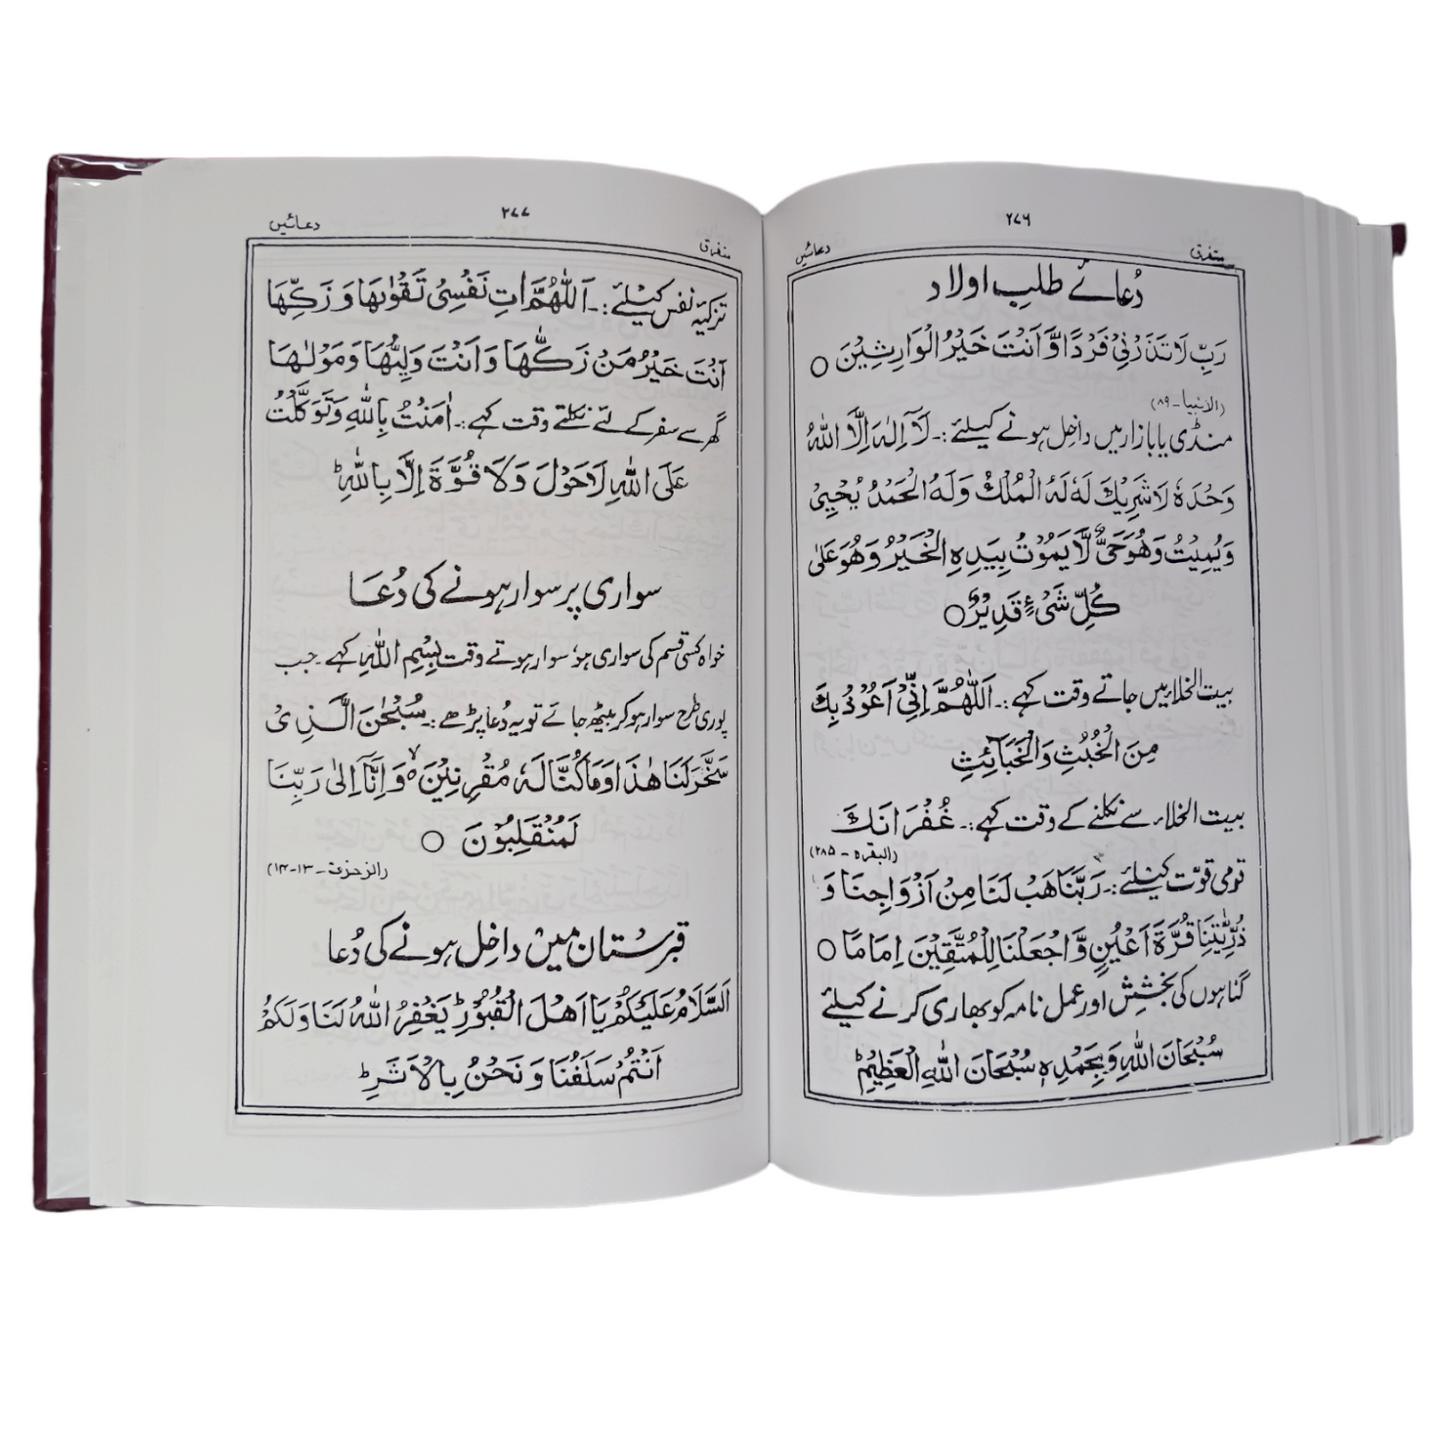 متفرق
۲۷۶
دعائیں
دُعائے طلبِ اولاد
رَبِّ لَا تَذَرْنِیْ فَرْدًا وَّاَنْتَ خَیْرُ الْوَارِثِیْنَ ○
(الانبیا ۔ ۸۹)
منڈی یا بازار میں داخل ہونے کیلئے :۔ لَآ اِلٰہَ اِلَّا اللہُ
وَحْدَہٗ لَا شَرِیْکَ لَہٗ لَہُ الْمُلْکُ وَلَہُ الْحَمْدُ یُحْیِیْ
وَیُمِیْتُ وَھُوَ حَیٌّ لَّا یَمُوْتُ بِیَدِہِ الْخَیْرُ وَھُوَ عَلٰی
کُلِّ شَیْءٍ قَدِیْرٌ ○
بیت الخلا میں جاتے وقت کہے :۔ اَللّٰھُمَّ اِنِّیْ اَعُوْذُ بِکَ
مِنَ الْخُبُثِ وَالْخَبَآئِثِ
بیت الخلاء سے نکلنے کے وقت کہے :۔ غُفْرَانَکَ
(البقرہ ۔ ۲۸۵)
قومی قوّت کیلئے :۔ رَبَّنَا ھَبْ لَنَا مِنْ اَزْوَاجِنَا وَ
ذُرِّیّٰتِنَا قُرَّۃَ اَعْیُنٍ وَّاجْعَلْنَا لِلْمُتَّقِیْنَ اِمَامًا ○
گناہوں کی بخشش اور عمل نامہ کو بھاری کرنے کیلئے
سُبْحَانَ اللہِ وَبِحَمْدِہٖ سُبْحَانَ اللہِ الْعَظِیْمِ ط
متفرق
۲۷۷
دعائیں
تزکیۂ نفس کیلئے :۔ اَللّٰھُمَّ اٰتِ نَفْسِیْ تَقْوٰىھَا وَ زَکِّھَا
اَنْتَ خَیْرُ مَنْ زَکّٰھَا وَ اَنْتَ وَلِیُّھَا وَ مَوْلٰھَا
گھر سے سفر کے لئے نکلتے وقت کہے :۔ اٰمَنْتُ بِاللہِ وَتَوَکَّلْتُ
عَلَی اللہِ لَا حَوْلَ وَلَا قُوَّۃَ اِلَّا بِاللہِ ط
سواری پر سوار ہونے کی دُعا
خواہ کسی قسم کی سواری ہو سوار ہوتے وقت بِسْمِ اللہِ کہے ۔ جب
پوری طرح سوار ہو کر بیٹھ جائے تو یہ دُعا پڑھے :۔ سُبْحٰنَ الَّذِیْ
سَخَّرَ لَنَا ھٰذَا وَمَا کُنَّا لَہٗ مُقْرِنِیْنَ ۙ وَ اِنَّآ اِلٰی رَبِّنَا
لَمُنْقَلِبُوْنَ ○
(الزخرف ۔ ۱۳-۱۴)
قبرستان میں داخل ہونے کی دُعا
اَلسَّلَامُ عَلَیْکُمْ یَا اَھْلَ الْقُبُوْرِ ط یَغْفِرُ اللہُ لَنَا وَلَکُمْ
اَنْتُمْ سَلَفُنَا وَ نَحْنُ بِالْاَثَرِ ط